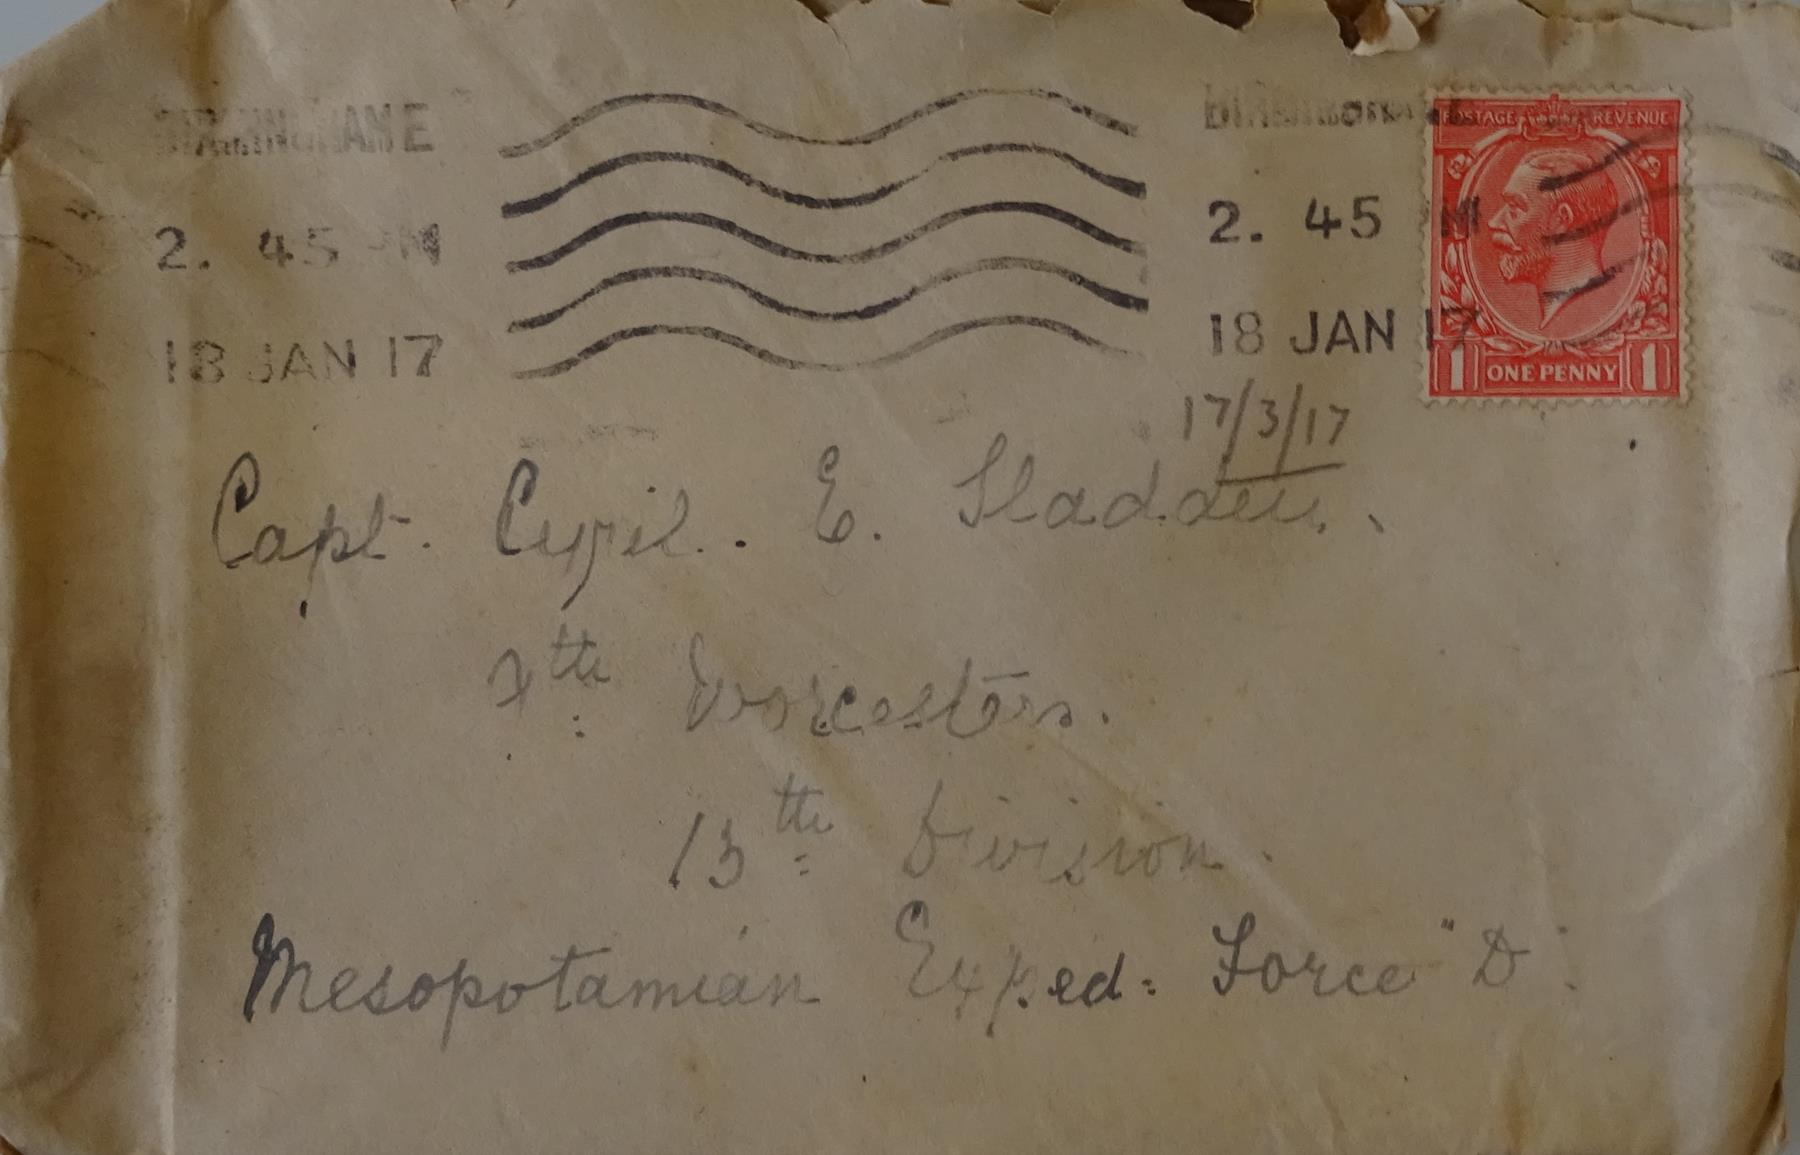 BIRMINGHAM E
2. 45 PM
18 JAN 17
2. 45 M
18 JAN 17
POSTAGE REVENUE
1 ONE PENNY 1
17/3/17
Capt. Cyril. E. Sladden.
Worcesters.
13th Division.
Mesopotamian Exped: Force "D".